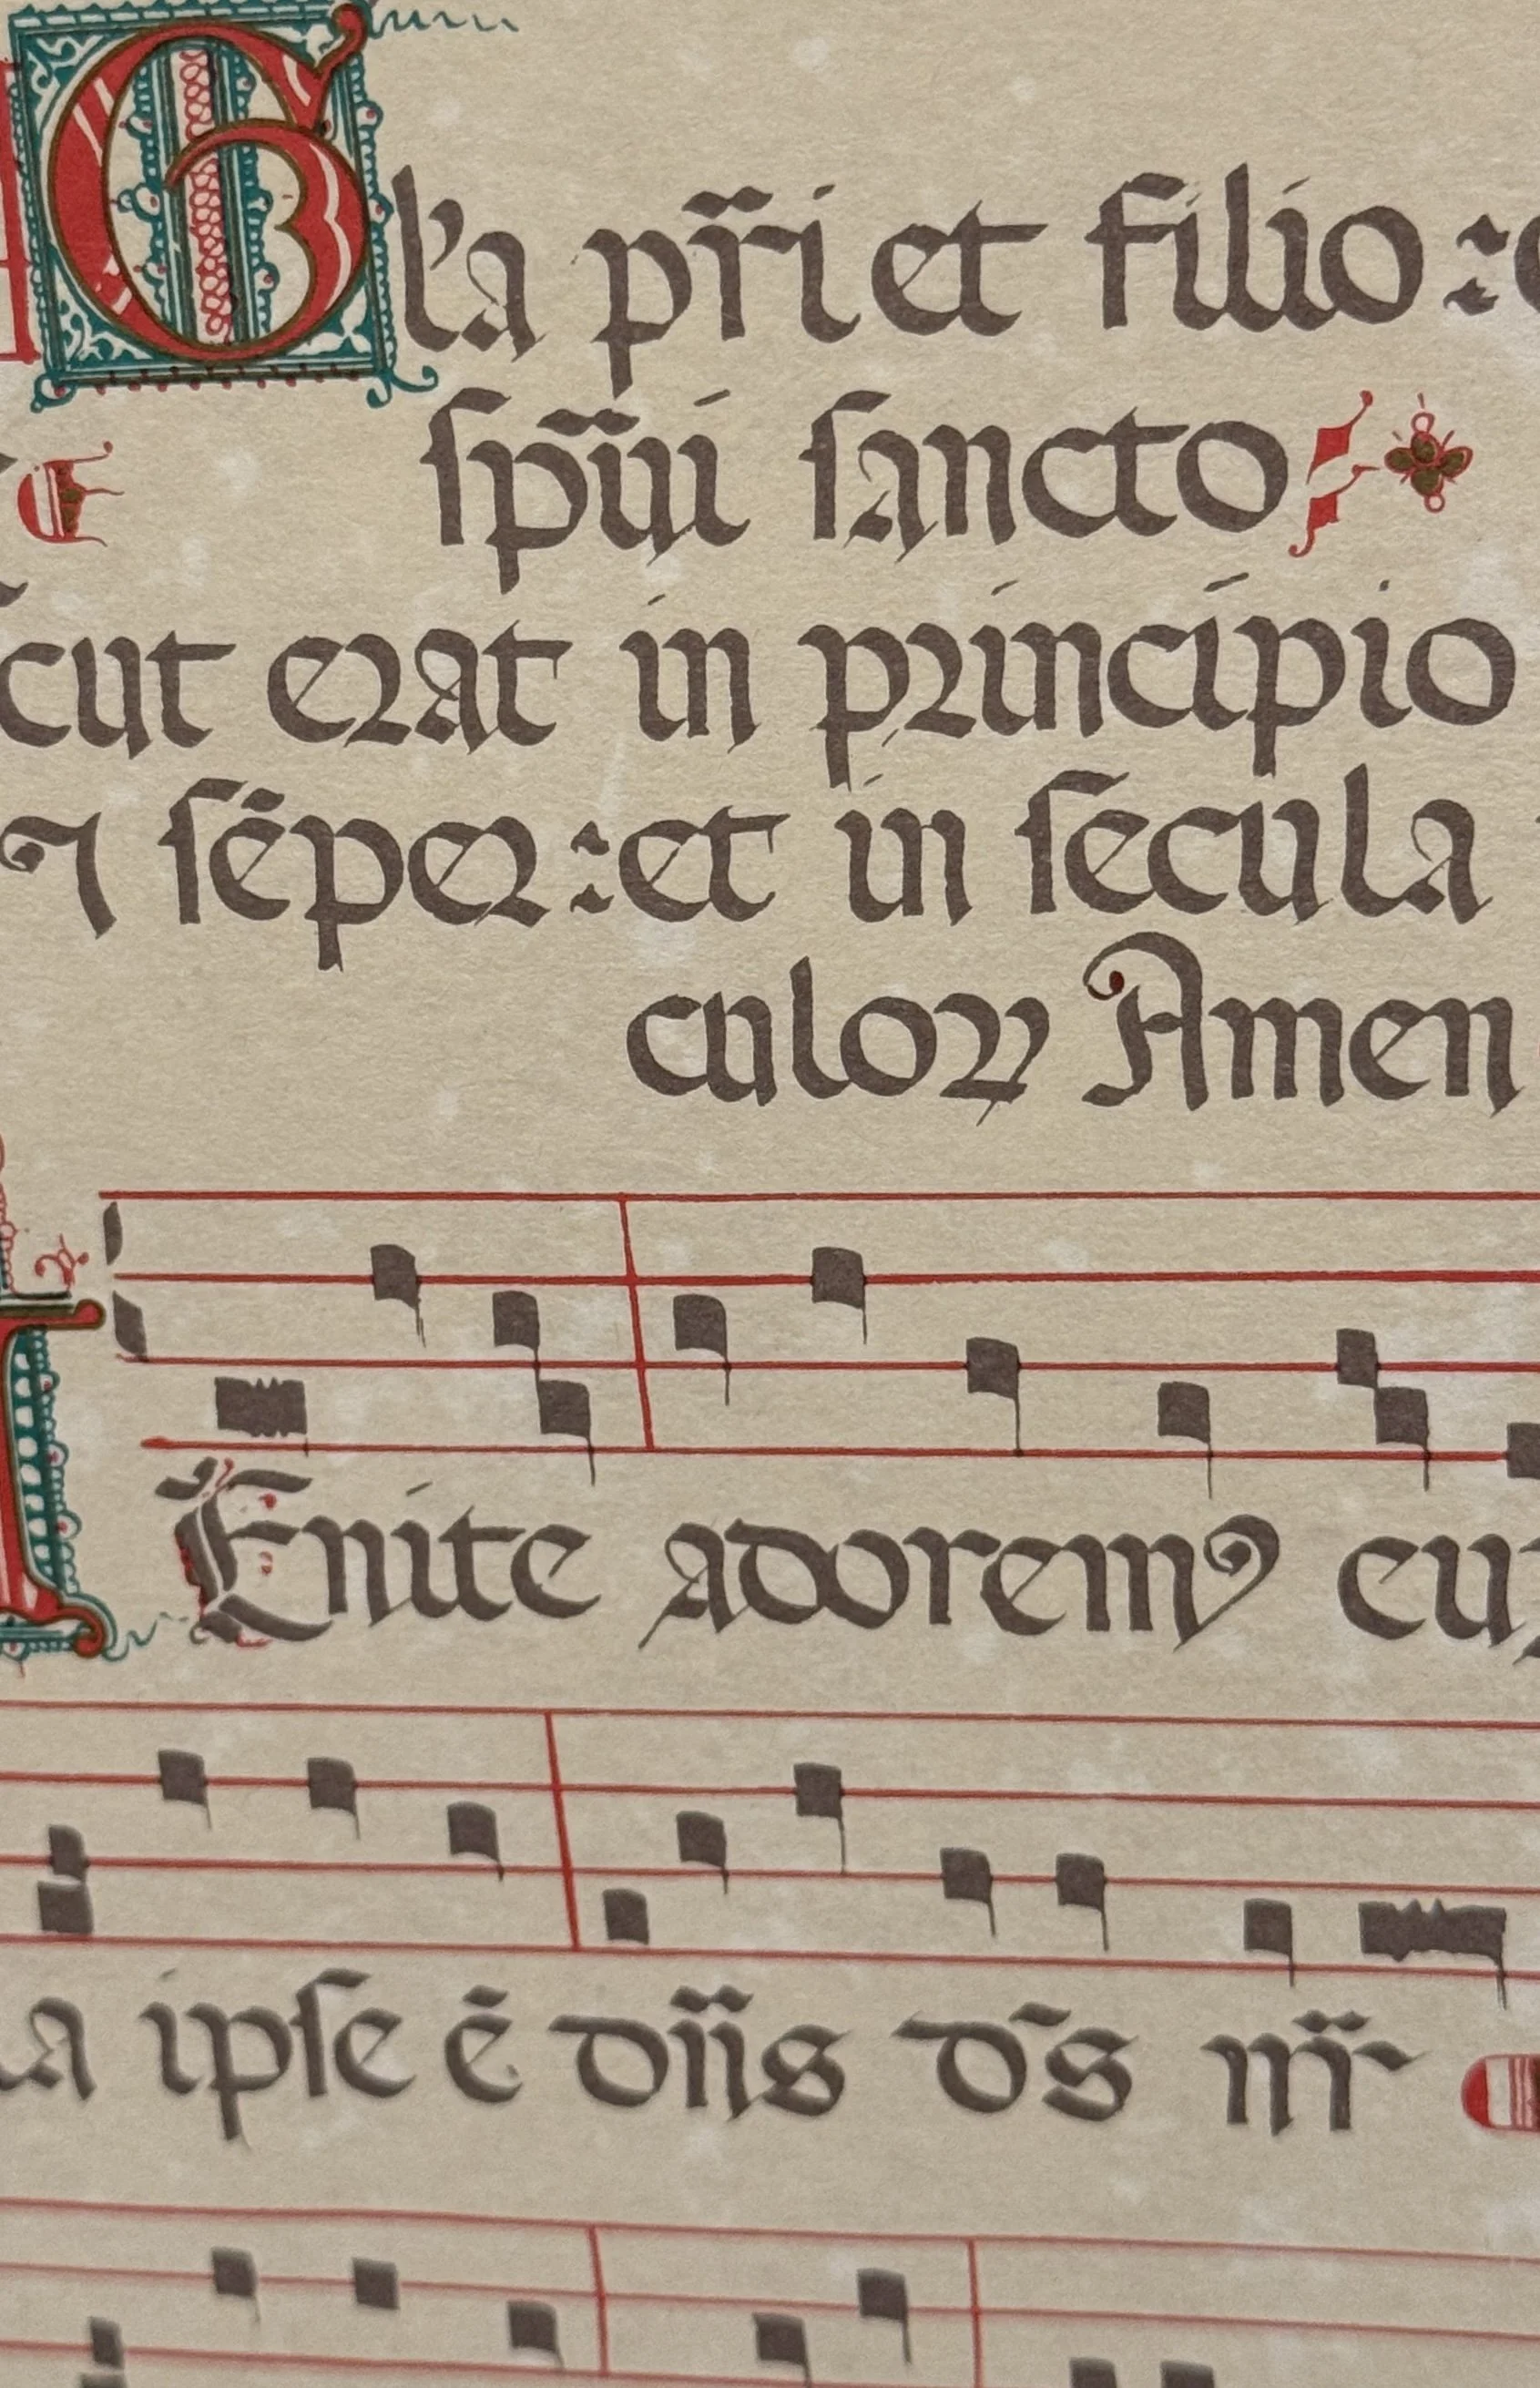 Gl'a pr̃i et filio : e
ſpũi ſancto
cut erat in principio
ſēper : et in ſecula
culoꝝ Amen
Enite adoremꝰ euȝ
ipſe ē dñs ds̄ nr̃